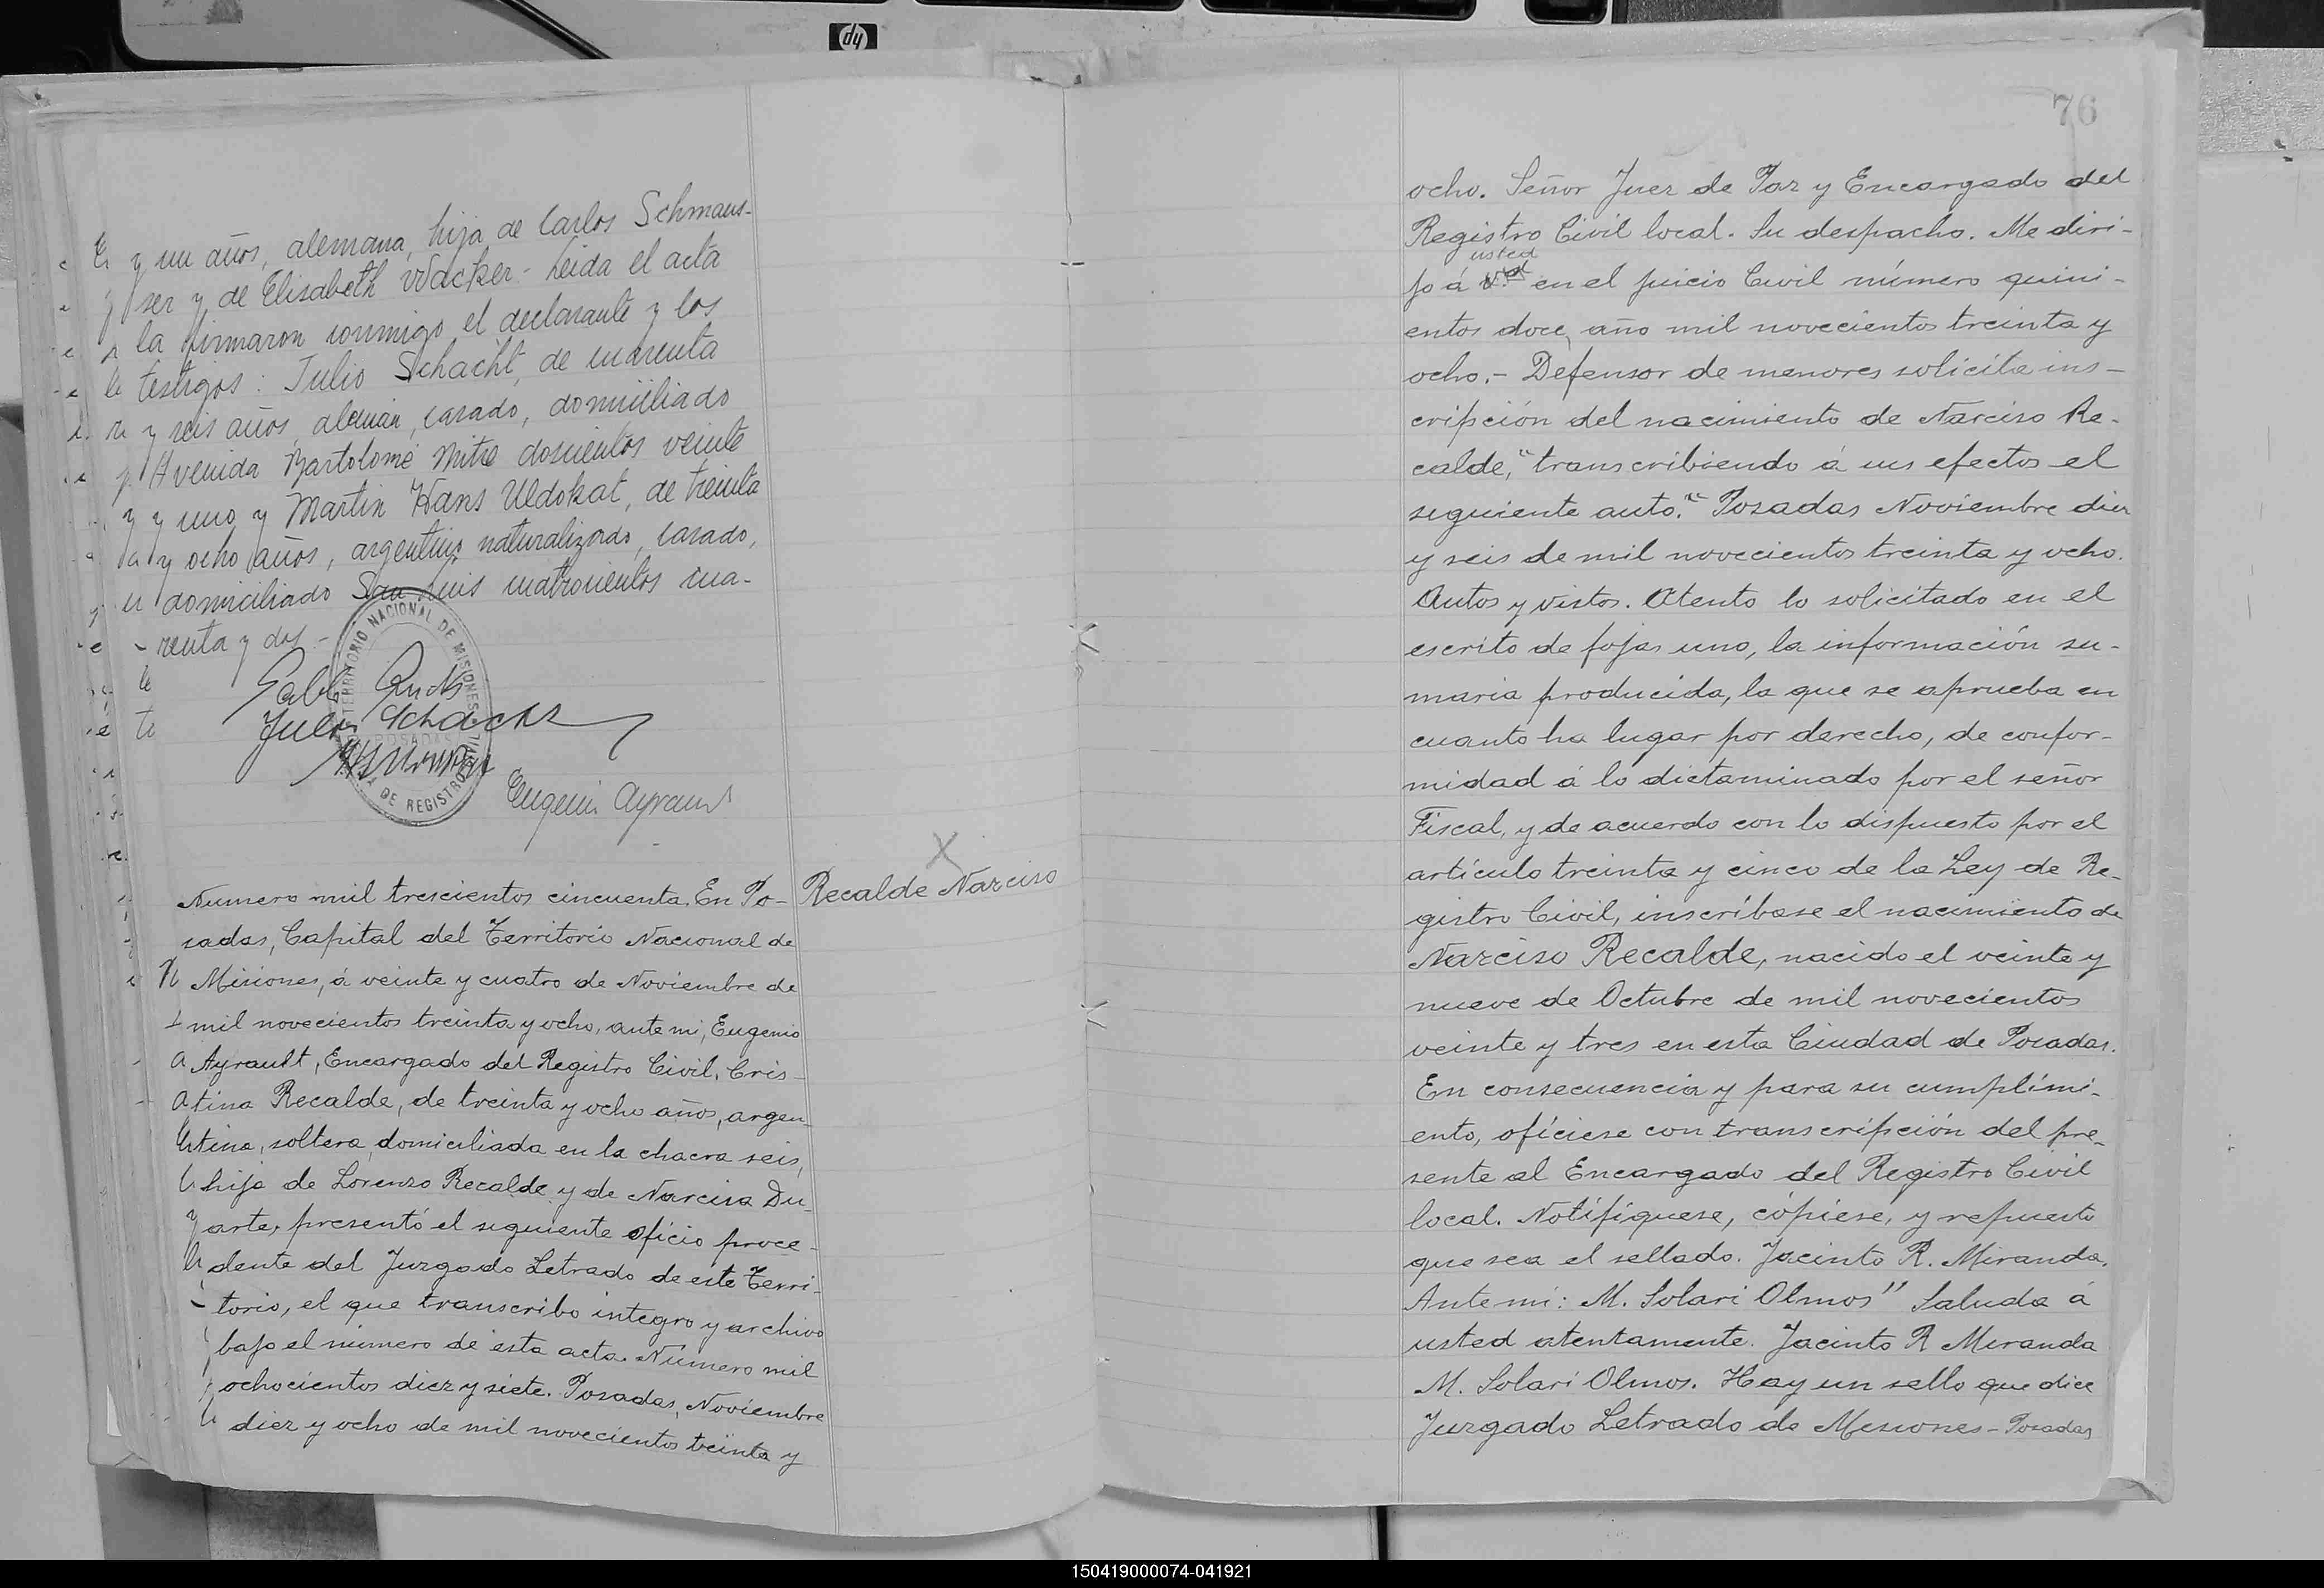 y un años, alemana, hija de Carlos Schmaus-
ser y de Elisabeth Wacker - Leida el acta
la firmaron conmigo el declarante y los
testigos: Julio Schacht, de cuarenta
y seis años, alemán, casado, domiciliado
Avenida Bartolomé Mitre doscientos veinte
y uno y Martin Hans Uldokat, de treinta
y ocho años, argentino naturalizado, casado,
domiciliado San Luis cuatrocientos cua-
renta y dos -
TERRITORIO NACIONAL DE MISIONES
POSADAS
DE REGISTRO CIVIL
Julio Schacht
Eugenio Ayrault
X
Recalde Narciso
Numero mil trescientos cincuenta. En Po-
sadas, Capital del Territorio Nacional de
Misiones, á veinte y cuatro de Noviembre de
mil novecientos treinta y ocho, ante mi, Eugenio
Ayrault, Encargado del Registro Civil, Cris-
tina Recalde, de treinta y ocho años, argen
tina, soltera, domiciliada en la chacra seis,
hija de Lorenzo Recalde y de Narcisa Du-
arte, presentó el siguiente oficio proce-
dente del Juzgado Letrado de este Terri-
torio, el que transcribo integro y archivo
bajo el número de esta acta. Número mil
ochocientos diez y siete. Posadas, Noviembre
diez y ocho de mil novecientos treinta y
76
ocho. Señor Juez de Paz y Encargado del
Registro Civil local. Su despacho. Me diri-
usted
jo á Vd en el juicio Civil número quini-
entos doce, año mil novecientos treinta y
ocho.- Defensor de menores solicita ins-
cripción del nacimiento de Narciso Re-
calde," transcribiendo á sus efectos el
siguiente auto:" Posadas Noviembre diez
y seis de mil novecientos treinta y ocho.
Autos y vistos. Atento lo solicitado en el
escrito de fojas uno, la información su-
maria producida, la que se aprueba en
cuanto ha lugar por derecho, de confor-
midad á lo dictaminado por el señor
Fiscal, y de acuerdo con lo dispuesto por el
artículo treinta y cinco de la Ley de Re-
gistro Civil, inscríbase el nacimiento de
Narciso Recalde, nacido el veinte y
nueve de Octubre de mil novecientos
veinte y tres en esta Ciudad de Posadas.
En consecuencia y para su cumplimi-
ento, ofíciese con transcripción del pre-
sente al Encargado del Registro Civil
local. Notifíquese, cópiese, y repuesto
que sea el sellado. Jacinto R. Miranda.
Ante mí: M. Solari Olmos" Saluda á
usted atentamente. Jacinto R Miranda
M. Solari Olmos. Hay un sello que dice
Juzgado Letrado de Misiones - Posadas
150419000074-041921